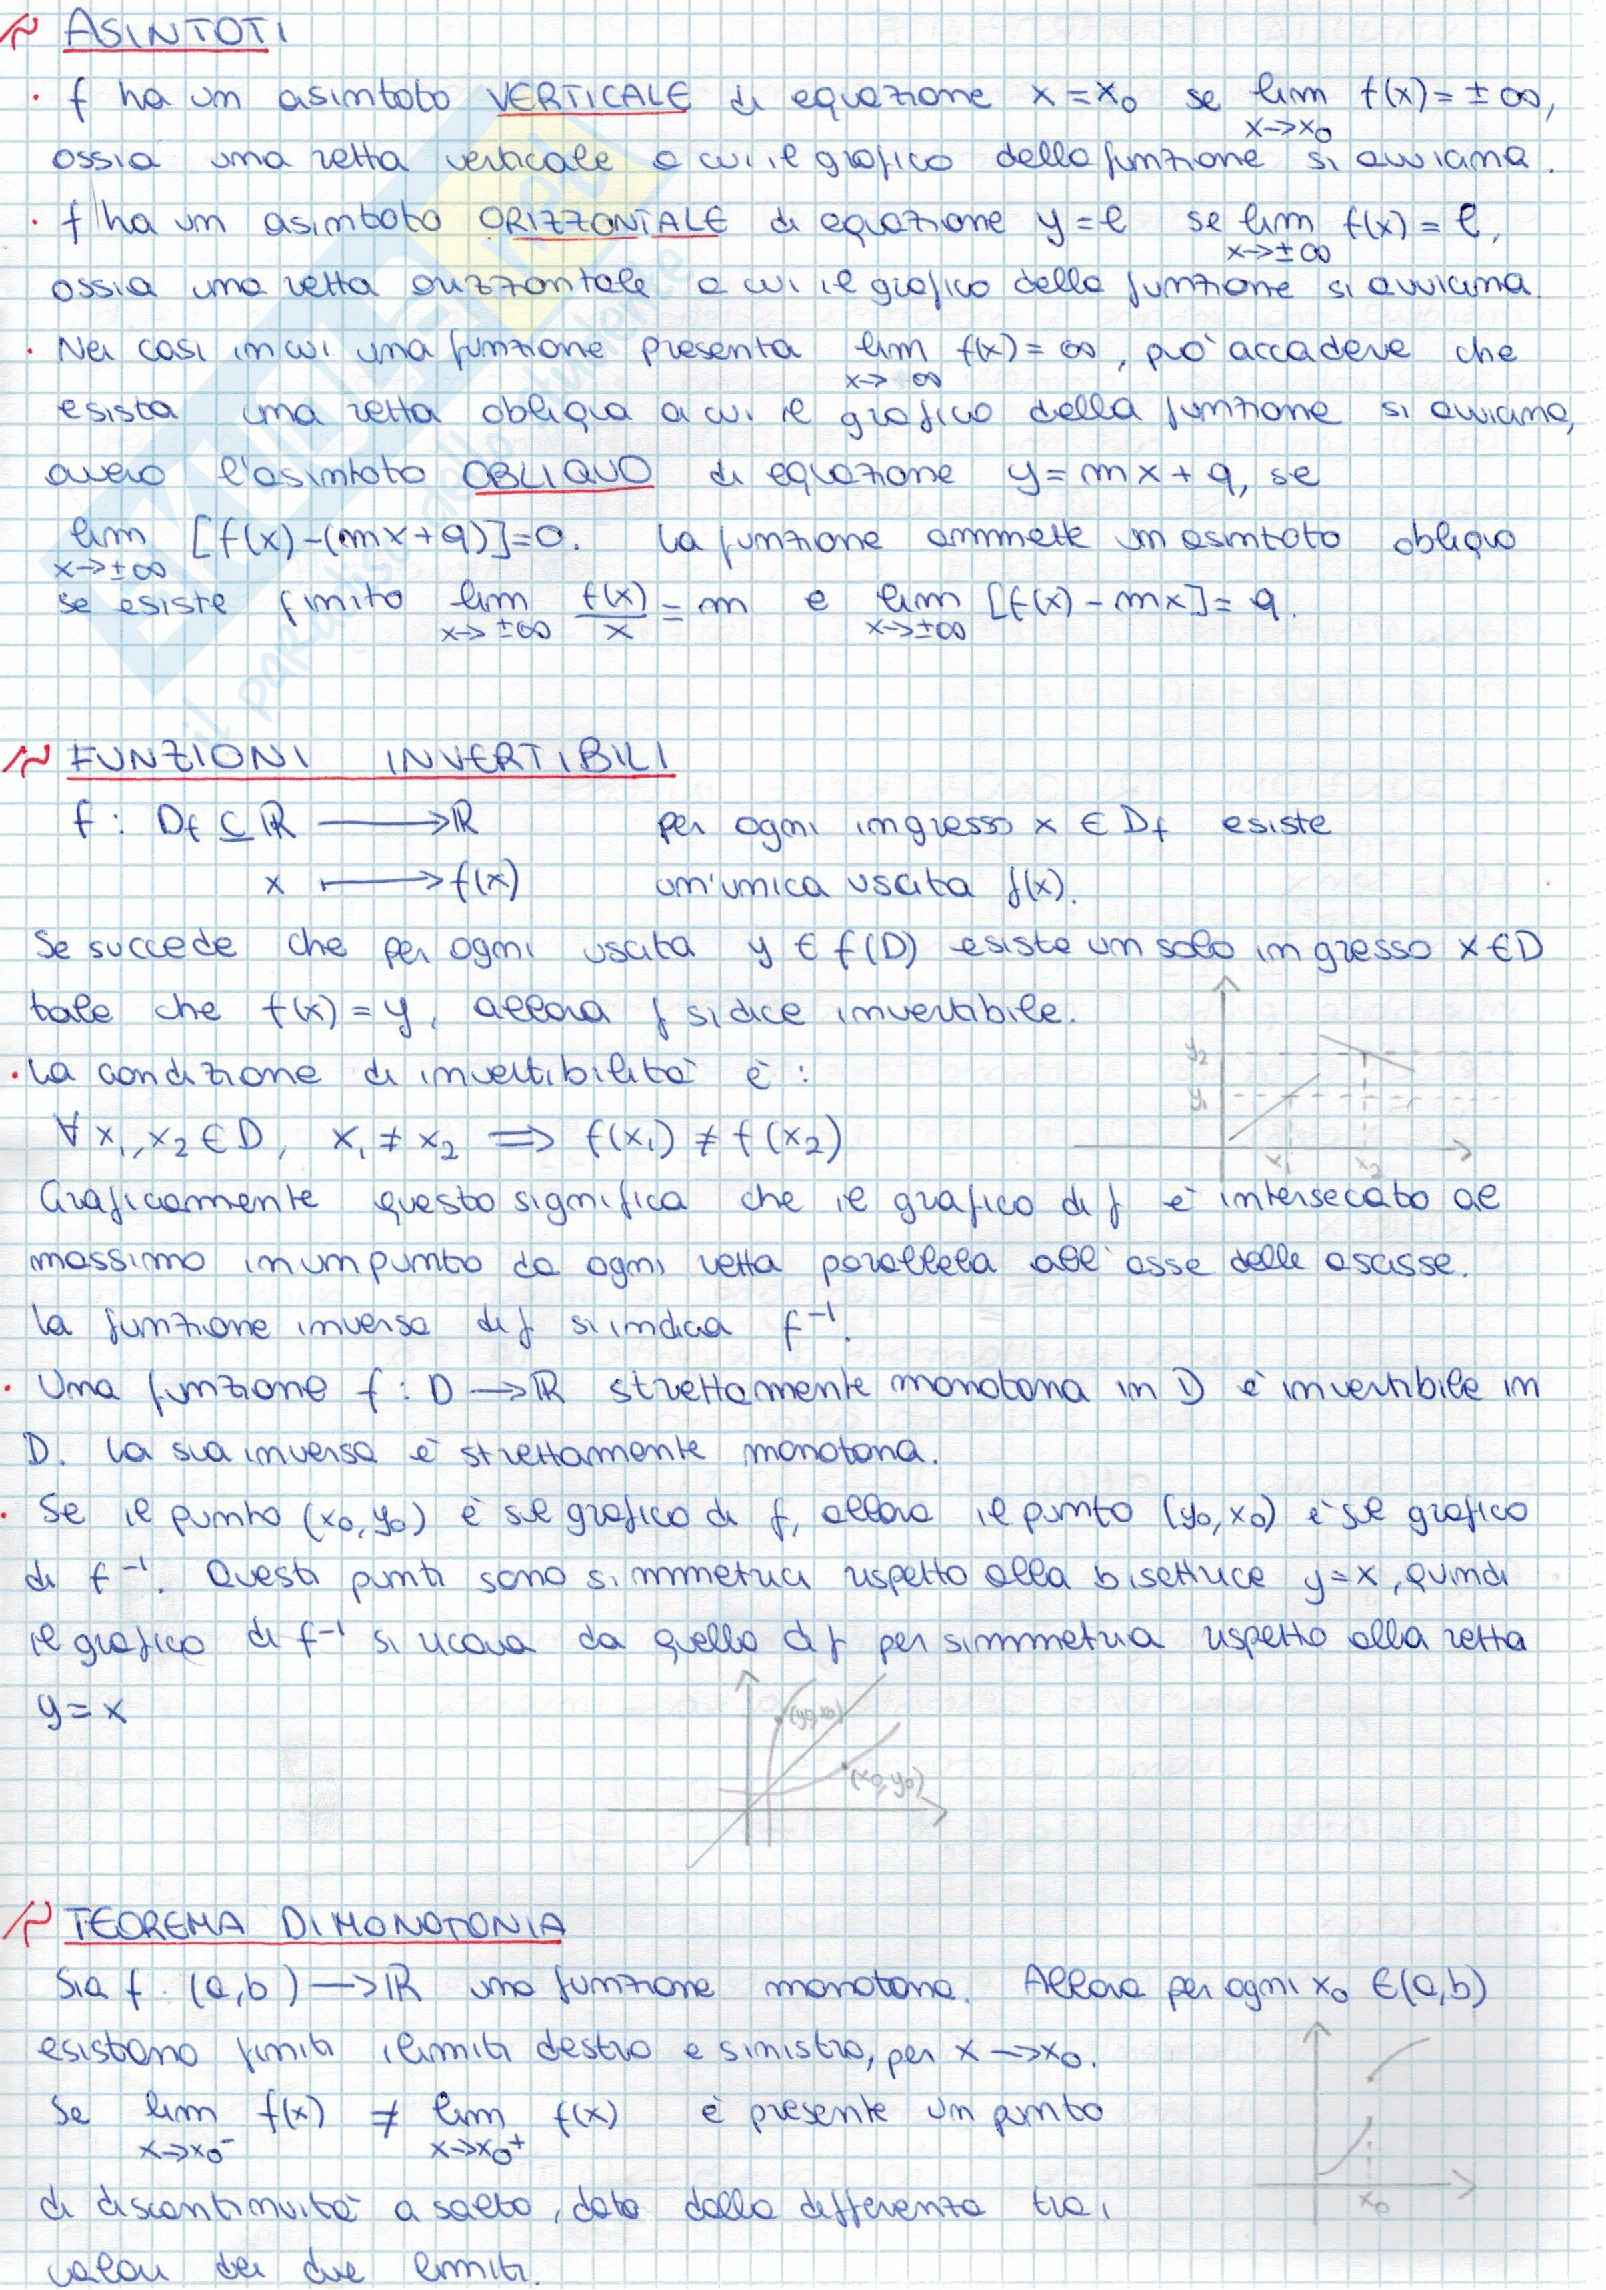 ASINTOTI
· f ha un asintoto VERTICALE di equazione x = x₀ se lim f(x) = ±∞,
x→x₀
ossia una retta verticale a cui il grafico della funzione si avvicina.
· f ha un asintoto ORIZZONTALE di equazione y = l se lim f(x) = l,
x→±∞
ossia una retta orizzontale a cui il grafico della funzione si avvicina.
· Nei casi in cui una funzione presenta lim f(x) = ∞, può accadere che
x→ ∞
esista una retta obliqua a cui il grafico della funzione si avvicina,
avero l'asintoto OBLIQUO di equazione y = mx + q, se
lim [f(x) - (mx + q)] = 0. La funzione ammette un asintoto obliquo
x→±∞
se esiste finito lim f(x)/x = m e lim [f(x) - mx] = q.
x→±∞ x→±∞
FUNZIONI INVERTIBILI
f : Df ⊆ ℝ ⟶ ℝ per ogni ingresso x ∈ Df esiste
x ⟼ f(x) un'unica uscita f(x).
Se succede che per ogni uscita y ∈ f(D) esiste un solo ingresso x ∈ D
tale che f(x) = y, allora f si dice invertibile.
· La condizione di invertibilità è :
∀ x₁, x₂ ∈ D, x₁ ≠ x₂ ⟹ f(x₁) ≠ f(x₂)
y₂
y₁
x₁ x₂
Graficamente questo significa che il grafico di f è intersecato al
massimo in un punto da ogni retta parallela all'asse delle ascisse.
La funzione inversa di f si indica f⁻¹.
· Una funzione f : D → ℝ strettamente monotona in D è invertibile in
D. La sua inversa è strettamente monotona.
· Se il punto (x₀, y₀) è sul grafico di f, allora il punto (y₀, x₀) è sul grafico
di f⁻¹. Questi punti sono simmetrici rispetto alla bisettrice y = x, quindi
il grafico di f⁻¹ si ricava da quello di f per simmetria rispetto alla retta
y = x
(y₀, x₀)
(x₀, y₀)
TEOREMA DI MONOTONIA
Sia f : (a, b) → ℝ una funzione monotona. Allora per ogni x₀ ∈ (a, b)
esistono finiti i limiti destro e sinistro, per x → x₀.
Se lim f(x) ≠ lim f(x) è presente un punto
x→x₀⁻ x→x₀⁺
di discontinuità a salto, dato dalla differenza tra i
valori dei due limiti.
x₀